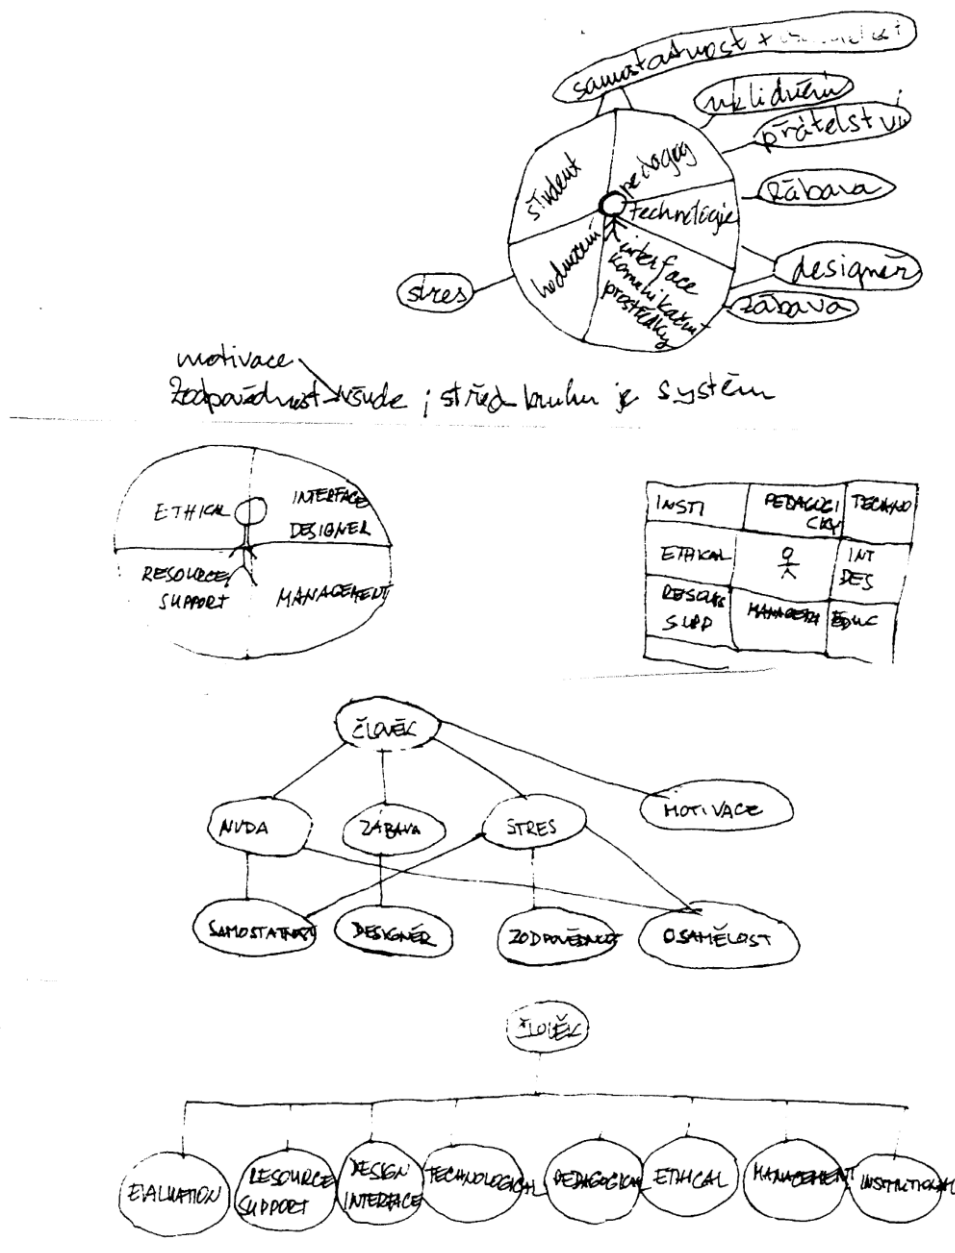 samostatnost x
uklidnění
přátelství
student
pedagog
zábava
technologie
hodnocení
interface
komunikační
prostředky
designér
stres
zábava
motivace
zodpovědnost všude ; střed kruhu je systém
ETHICAL
INTERFACE
DESIGNER
RESOURCE
SUPPORT
MANAGEMENT
INSTI
PEDAGOGI
CKY
TECHNO
ETHICAL
INT
DES
SUPP
EDUC
ČLOVĚK
NUDA
ZÁBAVA
STRES
MOTIVACE
SAMOSTATNOST
DESIGNÉR
ZODPOVĚDNOST
OSAMĚLOST
ČLOVĚK
EVALUATION
RESOURCE
SUPPORT
DESIGN
INTERFACE
TECHNOLOGICAL
PEDAGOGICAL
ETHICAL
MANAGEMENT
INSTITUTIONAL